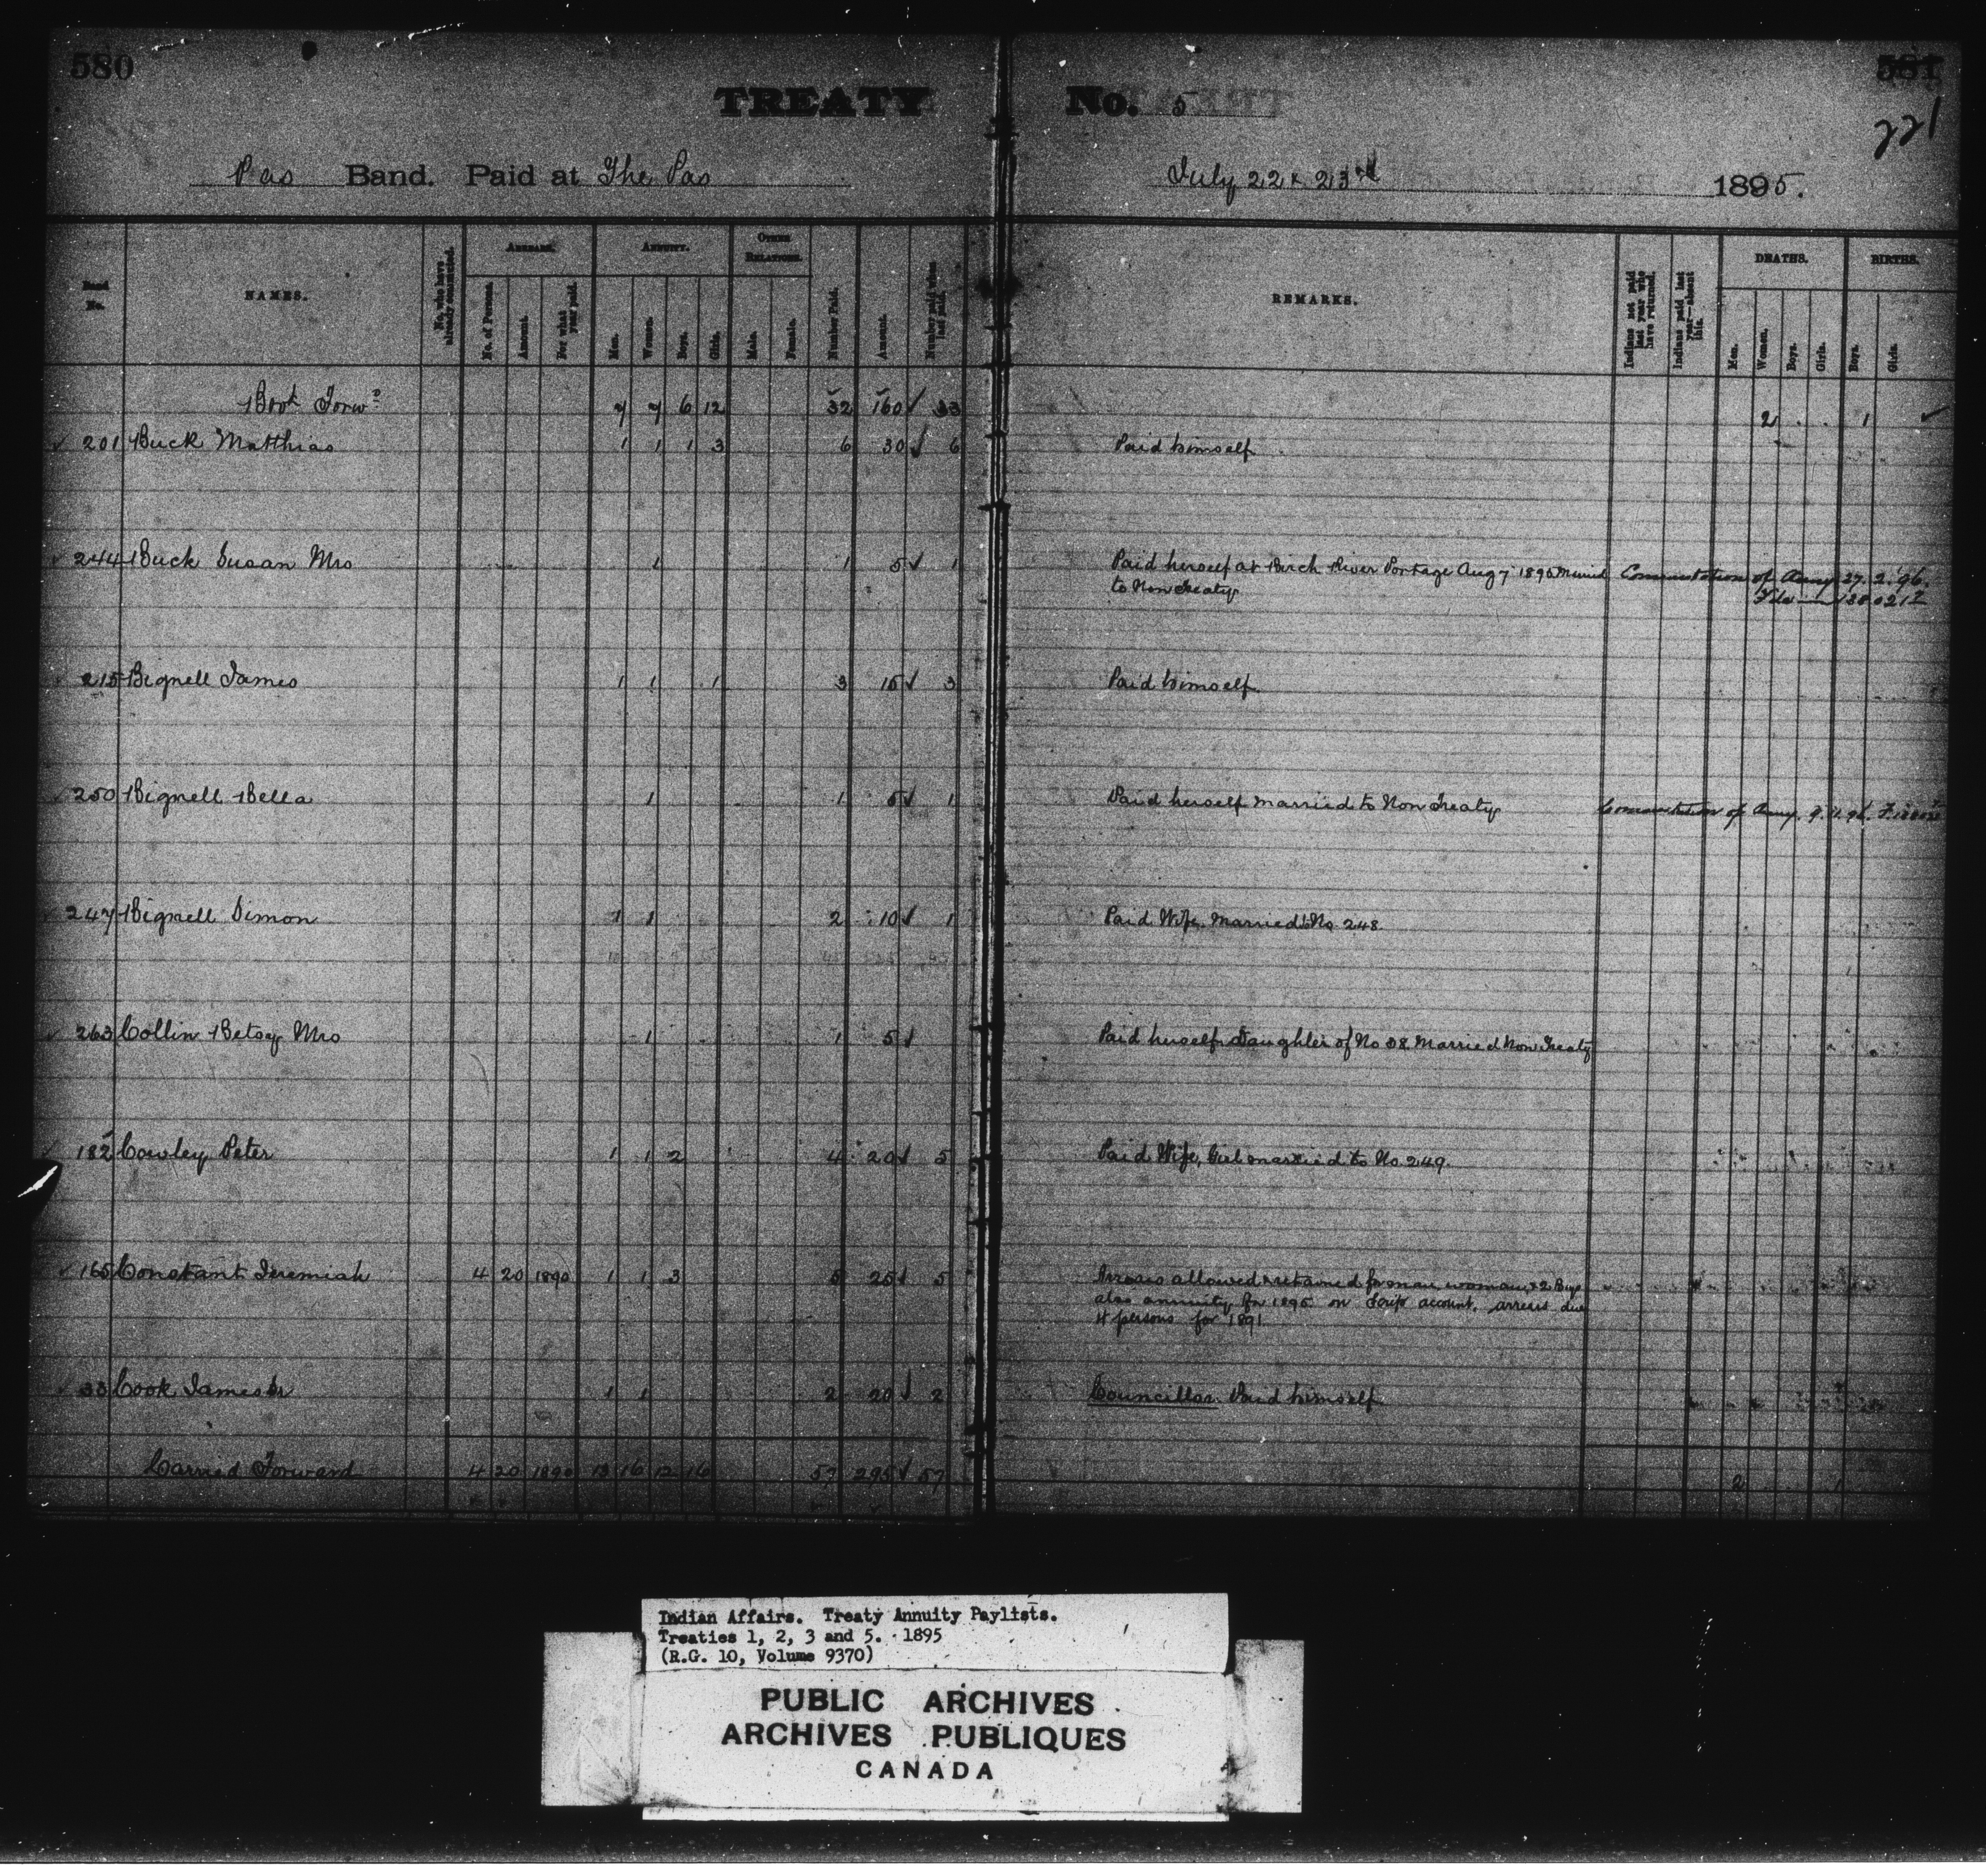 580
581
221
TREATY No. 5
Pas Band. Paid at The Pas July 22 & 23rd 1895.
Band No. NAMES. No. who have already commuted. ARREARS. No. of Persons. Amount. For what year paid. ANNUITY. Men. Women. Boys. Girls. OTHER RELATIONS. Male. Female. Number Paid. Amount. Number paid when last paid. REMARKS. Indians not paid last year who have returned. Indians paid last year—absent this. DEATHS. Men. Women. Boys. Girls. BIRTHS. Boys. Girls.
Bro't Forwd 7 7 6 12 32 160 ✓ 33 2 1 ✓
✓ 201 Buck Matthias 1 1 1 3 6 30 ✓ 6 Paid himself
✓ 244 Buck Susan Mrs 1 1 5 ✓ 1 Paid herself at Birch River Portage Aug 7 1895 Married Commutation of Anny 27.2.96.
to Non Treaty
215 Bignell James 1 1 1 3 15 ✓ 3 Paid himself.
✓ 250 Bignell Bella 1 1 5 ✓ 1 Paid herself married to Non Treaty Commutation of Anny.
✓ 247 Bignell Simon 1 1 2 10 ✓ 1 Paid Wife. Married to No 248.
✓ 263 Collin Betsy Mrs 1 1 5 ✓ Paid herself Daughter of No 38. Married Non Treaty
✓ 182 Cowley Peter 1 1 2 4 20 ✓ 5 Paid Wife, Girl married to No 249.
✓ 165 Constant Jeremiah 4 20 1890 1 1 3 5 25 ✓ 5 Arrears allowed & retained for man woman & 2 Boys
also annuity for 1895 on Scrip account. arrears due
4 persons for 1891
✓ 33 Cook James Sr 1 1 2 20 ✓ 2 Councillor. Paid himself.
Carried Forward 4 20 1890 13 16 12 16 57 295 ✓ 57 2 1
Indian Affairs. Treaty Annuity Paylists.
Treaties 1, 2, 3 and 5. 1895
(R.G. 10, Volume 9370)
PUBLIC ARCHIVES
ARCHIVES PUBLIQUES
CANADA